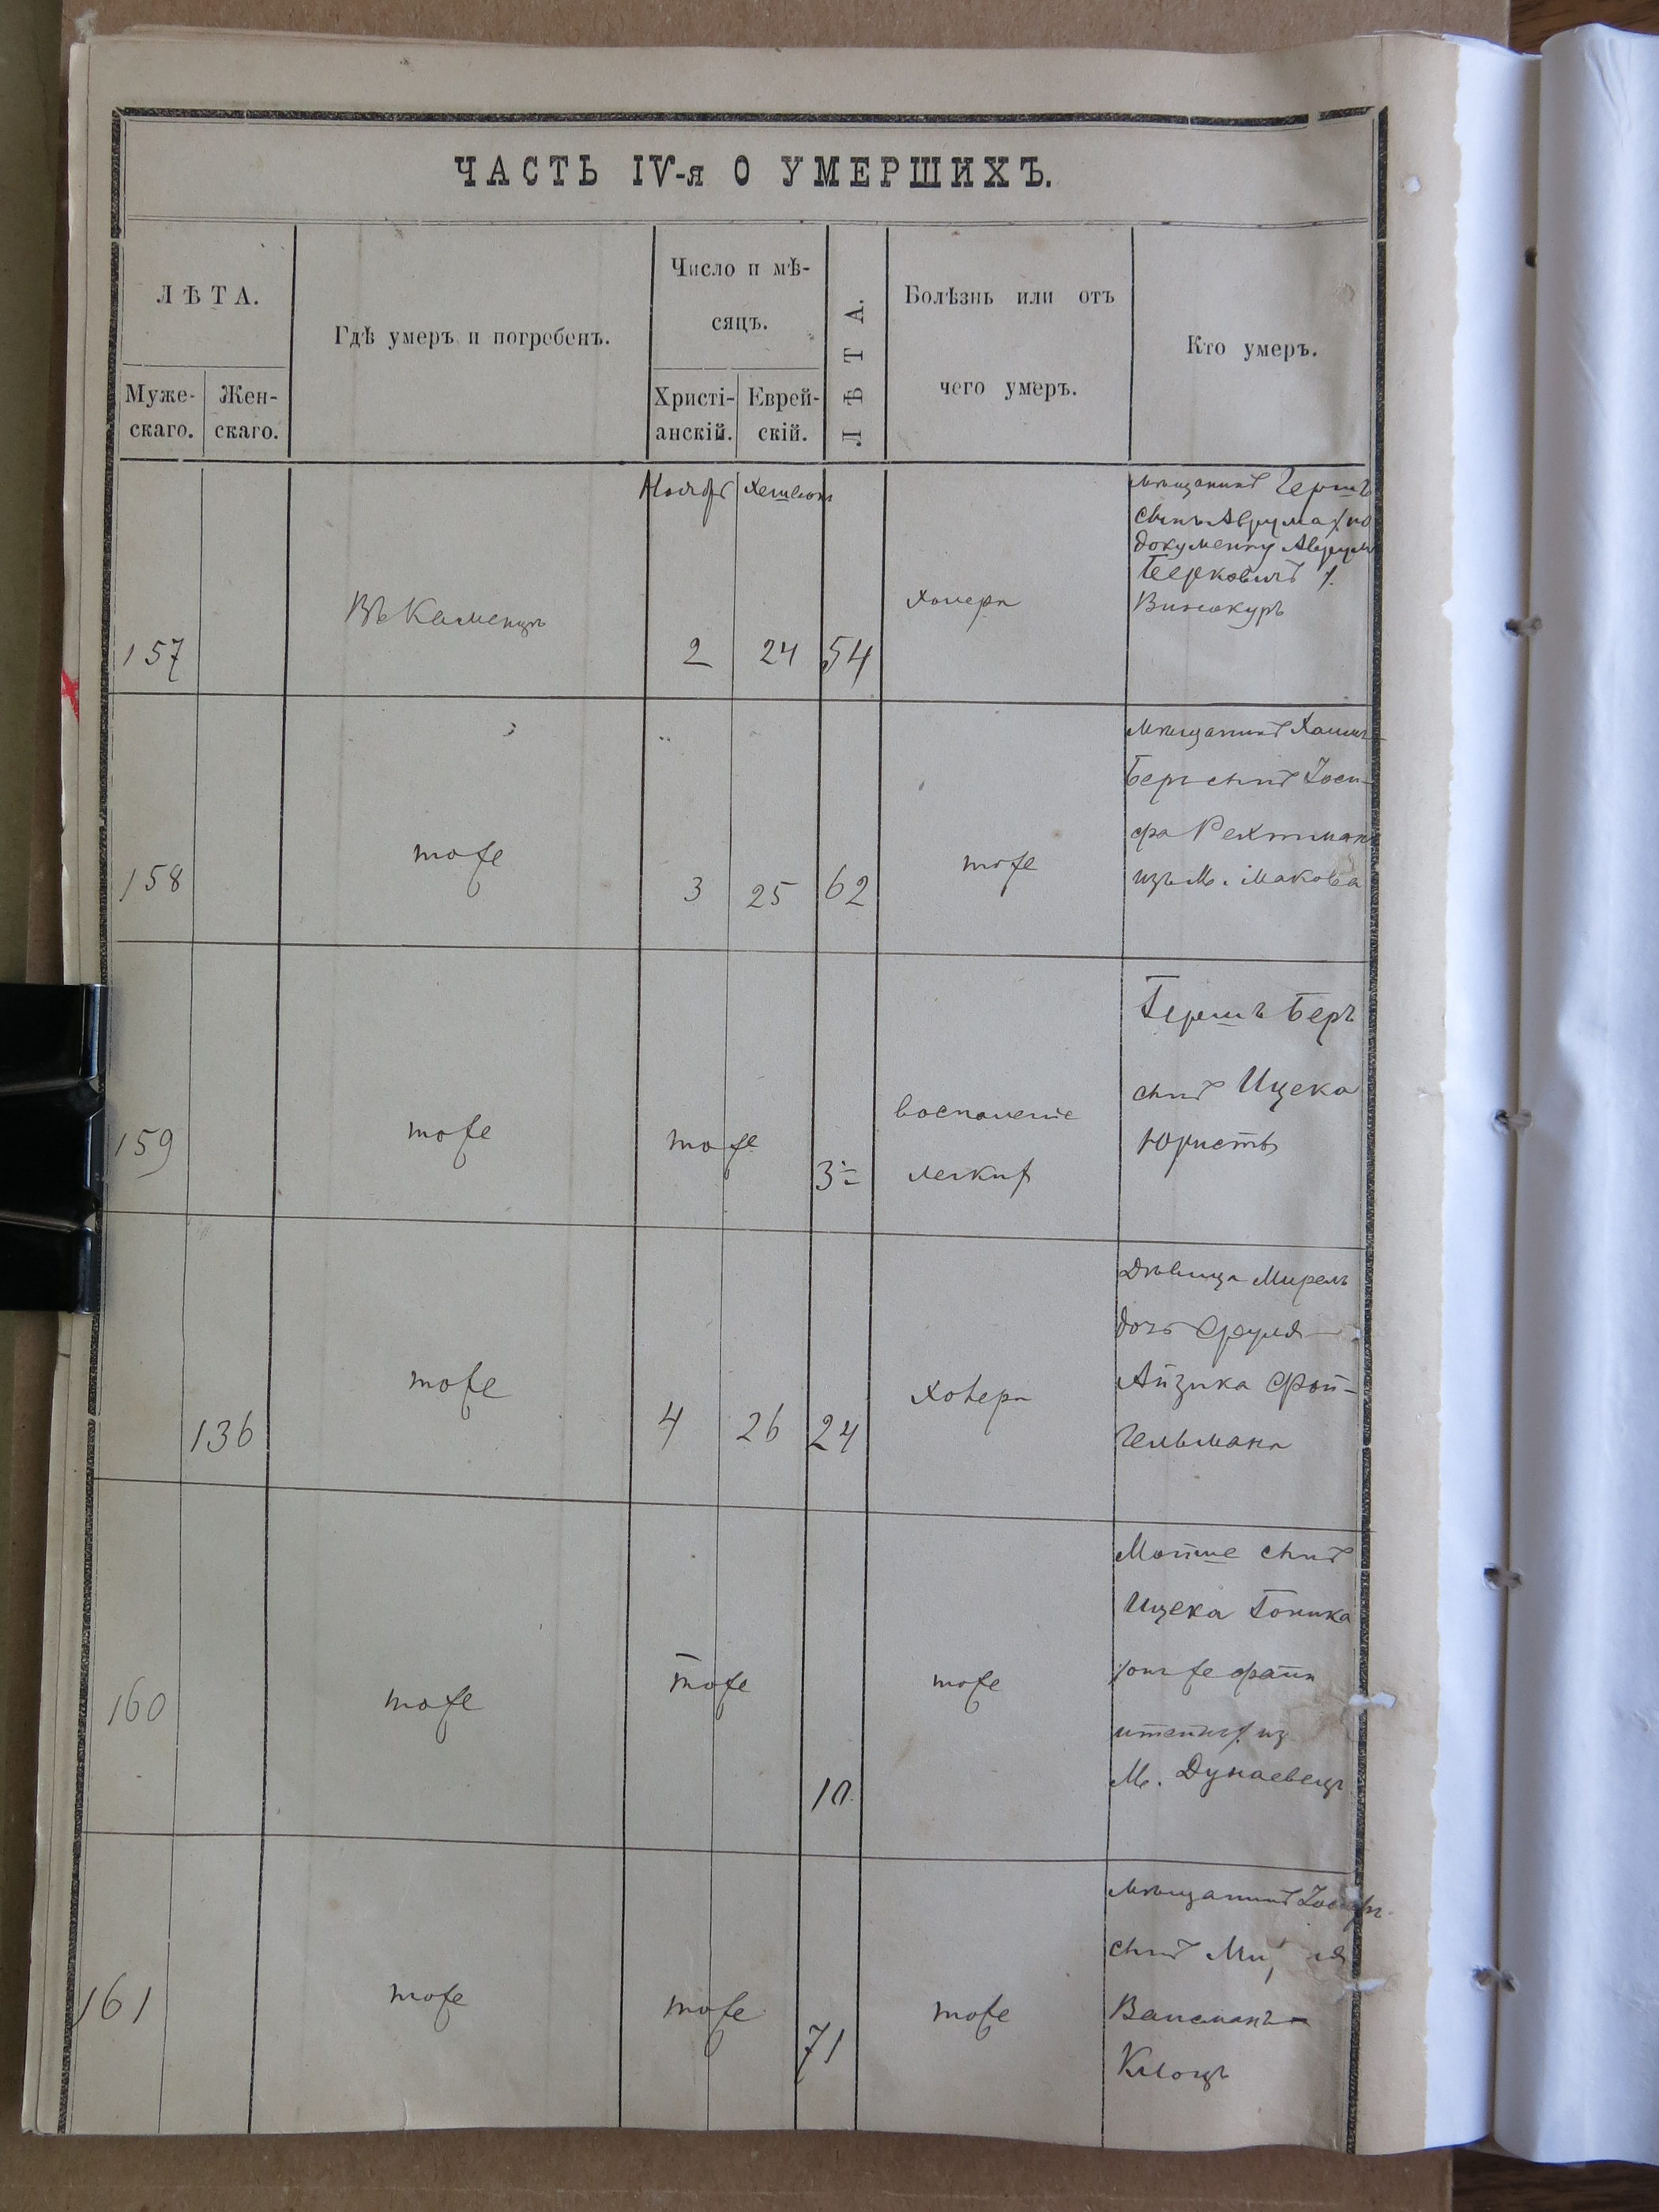 ЧАСТЬ IV-я О УМЕРШИХЪ.
ЛѢТА.
Муже-
скаго.
Жен-
скаго.
Гдѣ умеръ и погребенъ.
Число и мѣ-
сяцъ.
Христі-
анскій.
Еврей-
скій.
ЛѢТА.
Болѣзнь или отъ
чего умеръ.
Кто умеръ.
157
Въ Каменцѣ
Ноябрь
2
Хешвонъ
24
54
холера
мѣщанинъ Гершъ
сынъ Аврума /по
документу Аврумъ
Беркович /.
Винокуръ
158
тоже
3
25
62
тоже
мѣщанинъ Хаимъ
Беръ сынъ Іоси-
фа Рехтман
изъ М. Макова
159
тоже
тоже
3
воспаленіе
легких
Гершъ Беръ
сынъ Ицека
Юристъ
136
тоже
4
26
24
холера
Дѣвица Мирель
дочь Сруля
Айзика Фой-
гельмана
160
тоже
тоже
10
тоже
Мотше сынъ
Ицека Гоника
/онъ же
из
М. Дунаевецъ
161
тоже
тоже
71
тоже
мѣщанинъ Іосифъ
сынъ
Вайсманъ
Клоцъ